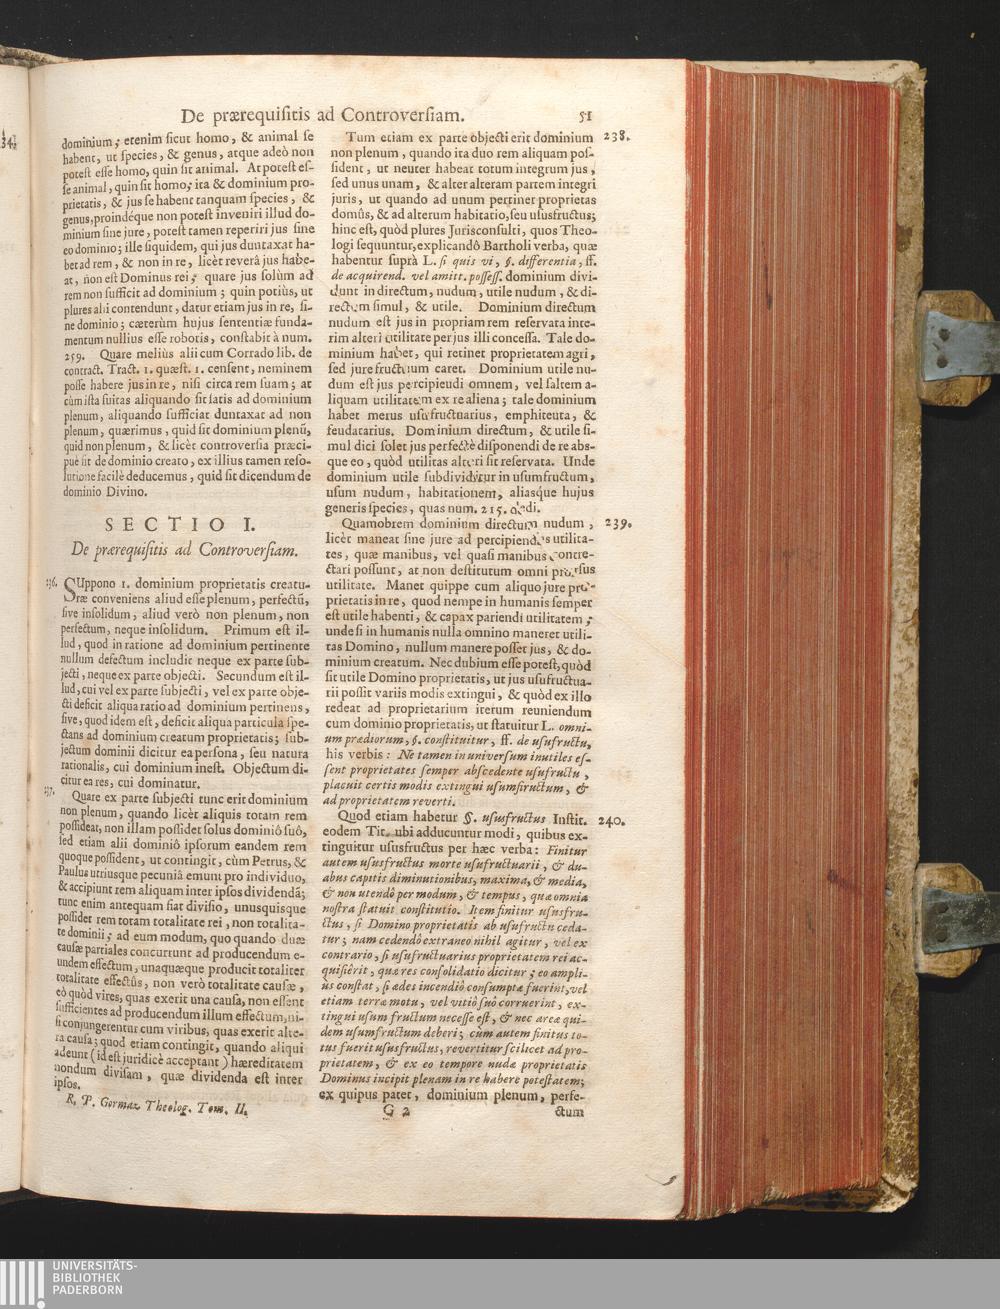 De prærequisitis ad Controversiam. 51
dominium; etenim sicut homo, & animal se
habent, ut species, & genus, atque adeò non
potest esse homo, quin sit animal. At potest es-
se animal, quin sit homo; ita & dominium pro-
prietatis, & jus se habent tanquam species, &
genus, proindéque non potest inveniri illud do-
minium sine jure, potest tamen reperiri jus sine
eo dominio; ille siquidem, qui jus duntaxat ha-
bet ad rem, & non in re, licèt reverâ jus habe-
at, non est Dominus rei; quare jus solùm ad
rem non sufficit ad dominium; quin potiùs, ut
plures alii contendunt, datur etiam jus in re, si-
ne dominio; cæterùm hujus sententiæ funda-
mentum nullius esse roboris, constabit à num.
259. Quare meliùs alii cum Corrado lib. de
contract. Tract. 1. quæst. 1. censent, neminem
posse habere jus in re, nisi circa rem suam; at
cùm ista suitas aliquando sit satis ad dominium
plenum, aliquando sufficiat duntaxat ad non
plenum, quærimus, quid sit dominium plenū,
quid non plenum, & licèt controversia præci-
puè sit de dominio creato, ex illius tamen reso-
lutione facilè deducemus, quid sit dicendum de
dominio Divino.
SECTIO I.
De prærequisitis ad Controversiam.
236. SUppono 1. dominium proprietatis creatu-
ræ conveniens aliud esse plenum, perfectū,
sive insolidum, aliud verò non plenum, non
perfectum, neque insolidum. Primum est il-
lud, quod in ratione ad dominium pertinente
nullum defectum includit neque ex parte sub-
jecti, neque ex parte objecti. Secundum est il-
lud, cui vel ex parte subjecti, vel ex parte obje-
cti deficit aliqua ratio ad dominium pertinens,
sive, quod idem est, deficit aliqua particula spe-
ctans ad dominium creatum proprietatis; sub-
jectum dominii dicitur ea persona, seu natura
rationalis, cui dominium inest. Objectum di-
citur ea res, cui dominatur.
237. Quare ex parte subjecti tunc erit dominium
non plenum, quando licèt aliquis totam rem
possideat, non illam possidet solus dominiô suô,
sed etiam alii dominiô ipsorum eandem rem
quoque possident, ut contingit, cùm Petrus, &
Paulus utriusque pecuniâ emunt pro individuo,
& accipiunt rem aliquam inter ipsos dividendā;
tunc enim antequam fiat divisio, unusquisque
possidet rem totam totalitate rei, non totalita-
te dominii; ad eum modum, quo quando duæ
causæ partiales concurrunt ad producendum e-
undem effectum, unaquæque producit totaliter
totalitate effectûs, non verò totalitate causæ,
eò quòd vires, quas exerit una causa, non essent
sufficientes ad producendum illum effectum, ni-
si conjungerentur cum viribus, quas exerit alte-
ra causa; quod etiam contingit, quando aliqui
adeunt (id est juridicè acceptant) hæreditatem
nondum divisam, quæ dividenda est inter
ipsos.
R. P. Gormaz Theolog. Tom. II.
Tum etiam ex parte objecti erit dominium 238.
non plenum, quando ita duo rem aliquam pos-
sident, ut neuter habeat totum integrum jus,
sed unus unam, & alter alteram partem integri
juris, ut quando ad unum pertinet proprietas
domûs, & ad alterum habitatio, seu ususfructus;
hinc est, quòd plures Jurisconsulti, quos Theo-
logi sequuntur, explicandô Bartholi verba, quæ
habentur suprà L. si quis vi, §. differentia, ff.
de acquirend. vel amitt. possess. dominium divi-
dunt in directum, nudum, utile nudum, & di-
rectum simul, & utile. Dominium directum
nudum est jus in propriam rem reservata inte-
rim alteri utilitate per jus illi concessa. Tale do-
minium habet, qui retinet proprietatem agri,
sed jure fructuum caret. Dominium utile nu-
dum est jus percipieudi omnem, vel saltem a-
liquam utilitatem ex re aliena; tale dominium
habet merus usufructuarius, emphiteuta, &
feudatarius. Dominium directum, & utile si-
mul dici solet jus perfectè disponendi de re abs-
que eo, quòd utilitas alteri sit reservata. Unde
dominium utile subdividitur in usumfructum,
usum nudum, habitationem, aliasque hujus
generis species, quas num. 215. dedi.
Quamobrem dominium directum nudum, 239.
licèt maneat sine jure ad percipiendas utilita-
tes, quæ manibus, vel quasi manibus contre-
ctari possunt, at non destitutum omni prorsus
utilitate. Manet quippe cum aliquo jure pro-
prietatis in re, quod nempe in humanis semper
est utile habenti, & capax pariendi utilitatem;
unde si in humanis nulla omnino maneret utili-
tas Domino, nullum manere posset jus, & do-
minium creatum. Nec dubium esse potest, quòd
sit utile Domino proprietatis, ut jus usufructua-
rii possit variis modis extingui, & quòd ex illo
redeat ad proprietarium iterum reuniendum
cum dominio proprietatis, ut statuitur L. omni-
um prædiorum, §. constituitur, ff. de usufructu,
his verbis: Ne tamen in universum inutiles es-
sent proprietates semper abscedente usufructu,
placuit certis modis extingui usumfructum, &
ad proprietatem reverti.
Quod etiam habetur §. ususfructus Instit. 240.
eodem Tit. ubi adducuntur modi, quibus ex-
tinguitur ususfructus per hæc verba: Finitur
autem ususfructus morte usufructuarii, & du-
abus capitis diminutionibus, maxima, & media,
& non utendô per modum, & tempus, quæ omnia
nostra statuit constitutio. Item finitur ususfru-
ctus, si Domino proprietatis ab usufructu ceda-
tur; nam cedendô extraneo nihil agitur, vel ex
contrario, si usufructuarius proprietatem rei ac-
quisiêrit, quæ res consolidatio dicitur; eo ampli-
us constat, si ædes incendiô consumptæ fuerint, vel
etiam terræ motu, vel vitiô suô corruerint, ex-
tingui usum fructum necesse est, & nec areæ qui-
dem usumfructum deberi; cùm autem finitus to-
tus fuerit ususfructus, revertitur scilicet ad pro-
prietatem, & ex eo tempore nudæ proprietatis
Dominus incipit plenam in re habere potestatem;
ex quipus patet, dominium plenum, perfe-
G 2 ctum
UNIVERSITÄTS-
BIBLIOTHEK
PADERBORN